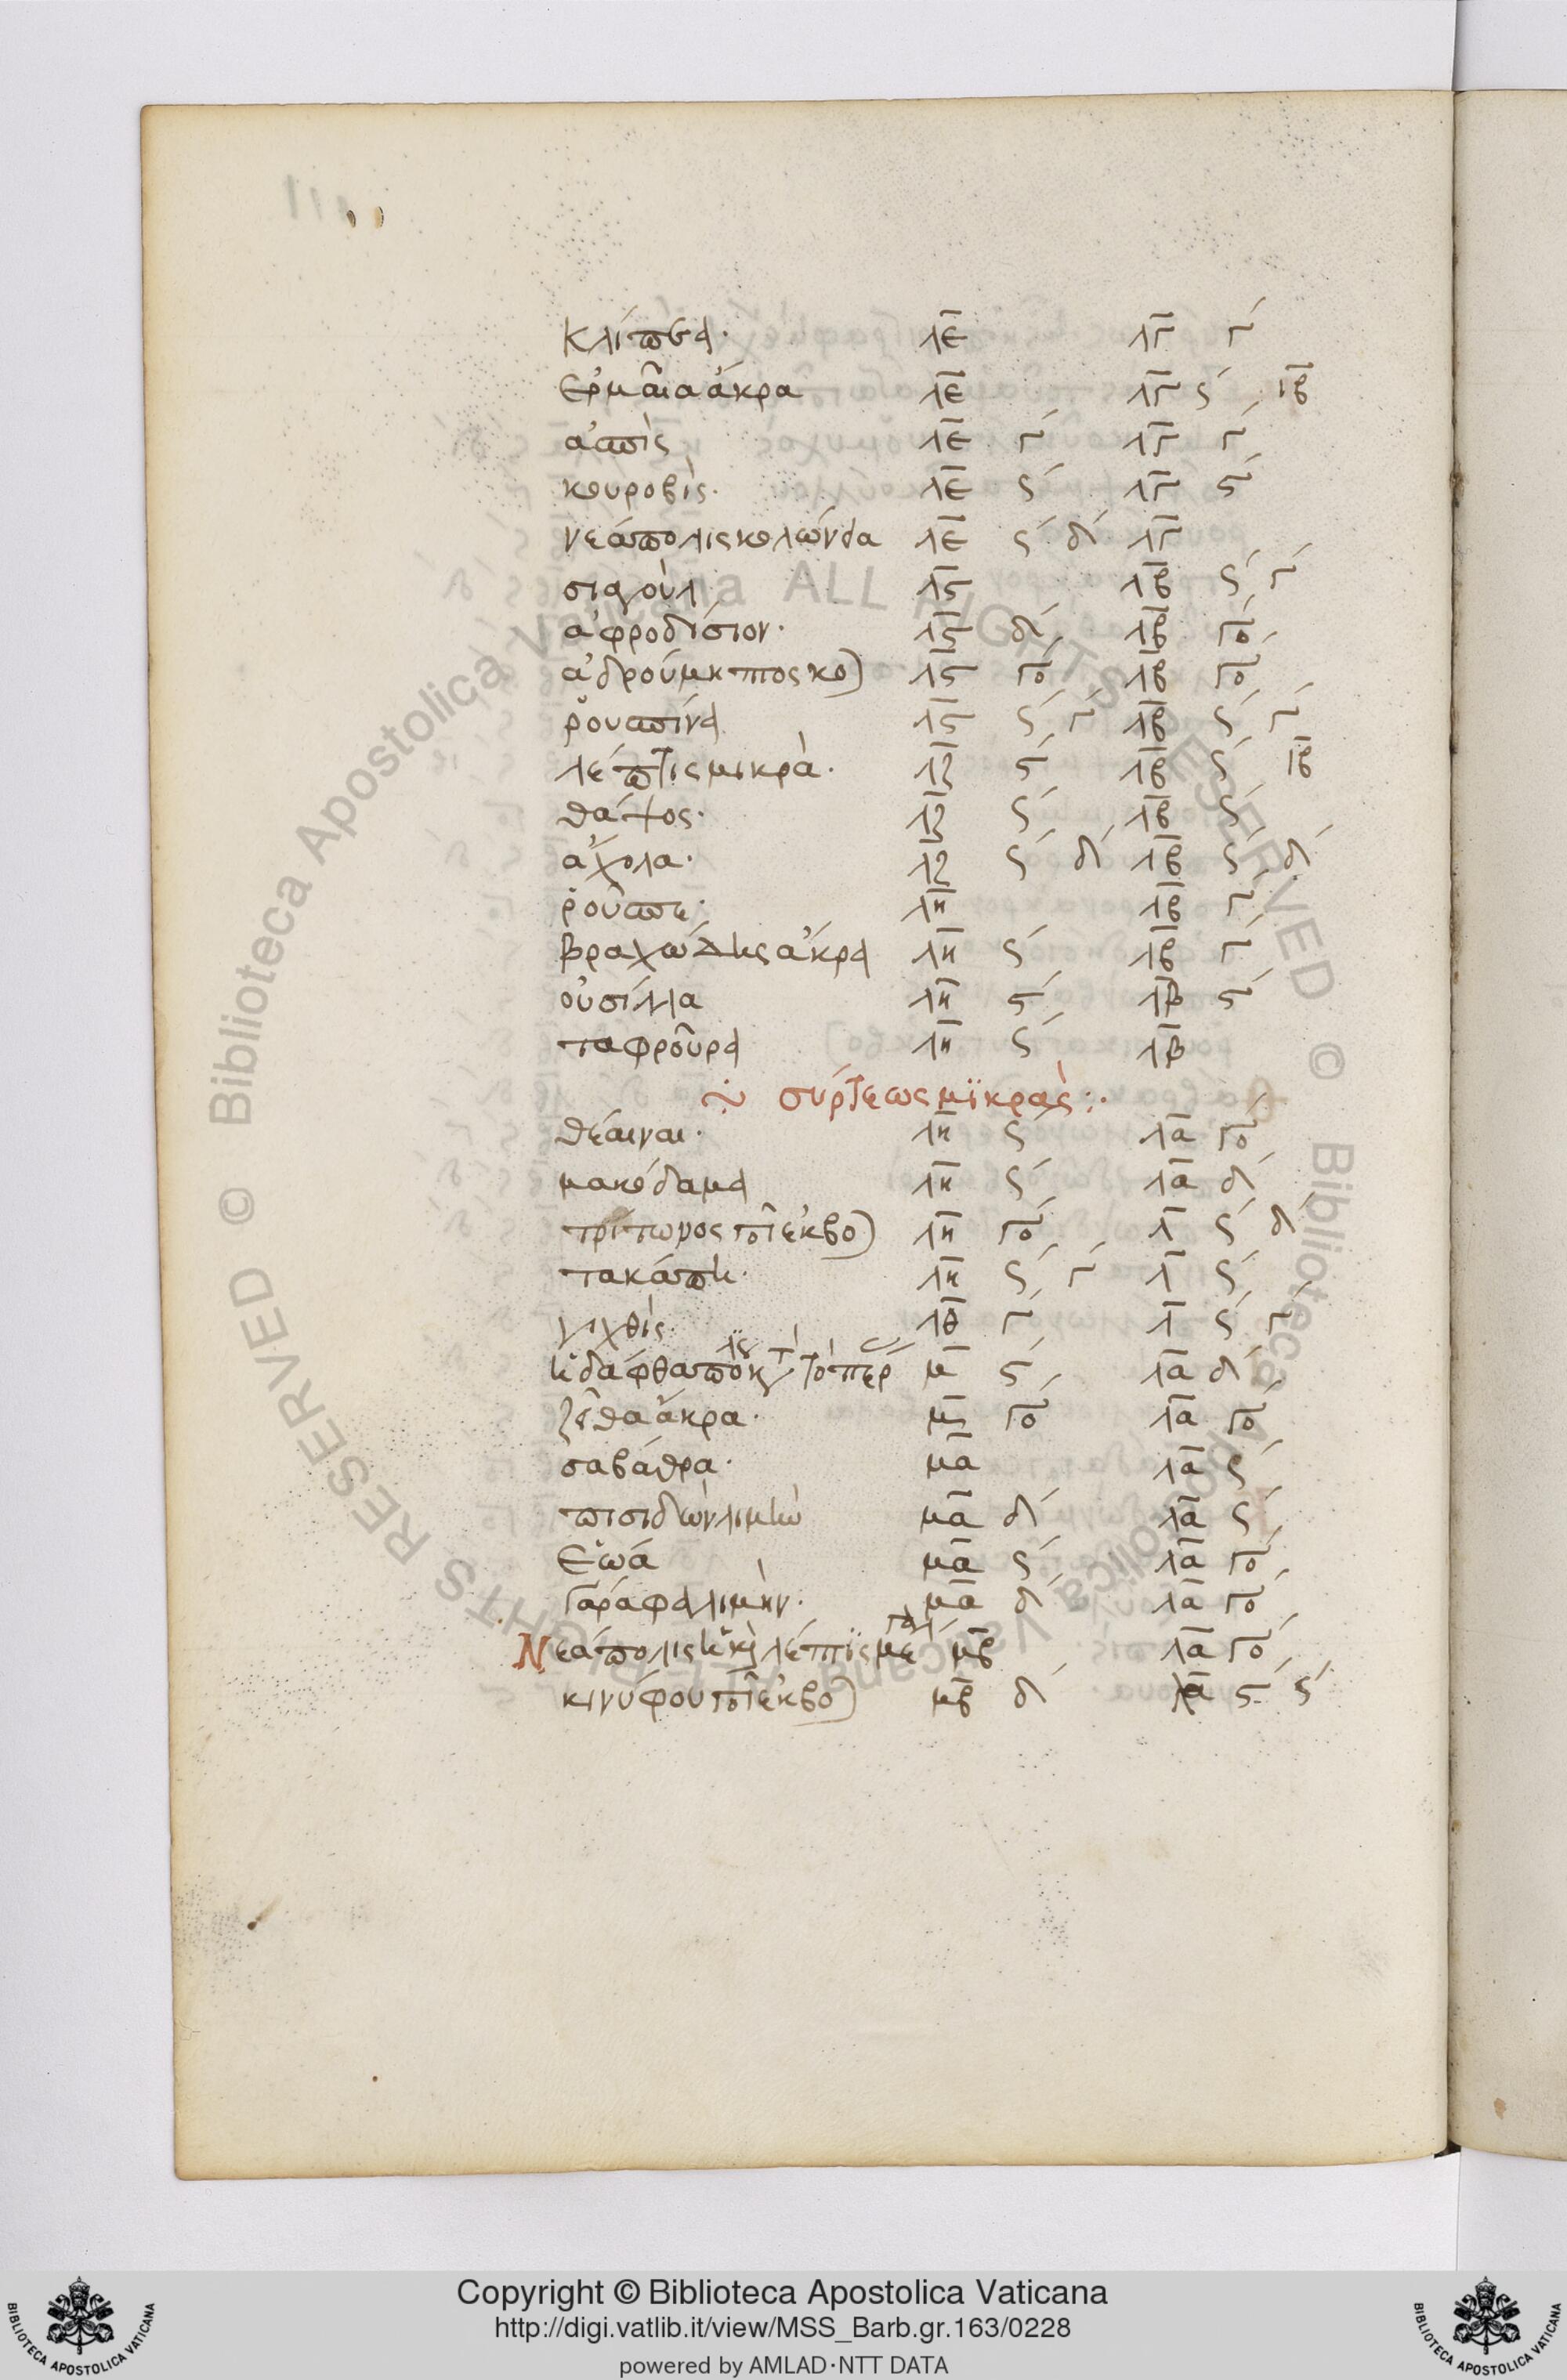 κλίπεα· λε λγ γ´
ἑρμαῖα ἄκρα λε λγ ϛ´ ιβ
ἀσπὶς λε γ´ λγ γ´
κουροβὶς· λε ϛ´ λγ ϛ´
νεάπολις κολώνια λε ϛ´ δ´ λγ
σιαγοὺλ λϛ λβ ϛ´ γ´
ἀφροδίσιον· λϛ δ´ λβ γο´
ἀδρούμηττος κο) λϛ γο´ λβ γο´
ῥουσπίνα λϛ ϛ´ γ´ λβ ϛ´ γ´
λέπτις μικρὰ· λζ ϛ´ λβ ϛ´ ιβ
θάψος· λζ ϛ´ λβ ϛ´
ἄχολα· λζ ϛ´ δ´ λβ ϛ´ δ´
ῥοῦσπε· λη λβ γ´
βραχώδης ἄκρα λη ϛ´ λβ γ´
οὐσίλλα λη ϛ´ λβ ϛ´
ταφροῦρα λη ϛ´ λβ
σύρτεως μϊκρᾶς:·
θέαιναι· λη ϛ´ λα γο´
μακόδαμα λη ϛ´ λα δ´
τρίτωνος ποτ ἐκβο) λη γο´ λ ϛ´ δ´
τακάπη· λη ϛ´ γ´ λ ϛ´
γιχθὶς· λθ γ´ λ ϛ´ γ´
μ ϛ´ λα δ´
ζεῖθα ἄκρα· μ γο´ λα γο´
σαβάθρα· μα λα ϛ´
πισιδὼν λιμὴν μα δ´ λα ϛ´
ἑωά μα ϛ´ λα γο´
γαράφα λιμὴν· μα δ´ λα γο´
Νεάπολις ἡ κὶ λέπτϊς μεγάλ μβ λα γο´
κινύφου ποτ ἐκβο) μβ δ´ λα ϛ´ ϛ´
Copyright © Biblioteca Apostolica Vaticana
http://digi.vatlib.it/view/MSS_Barb.gr.163/0228
powered by AMLAD·NTT DATA